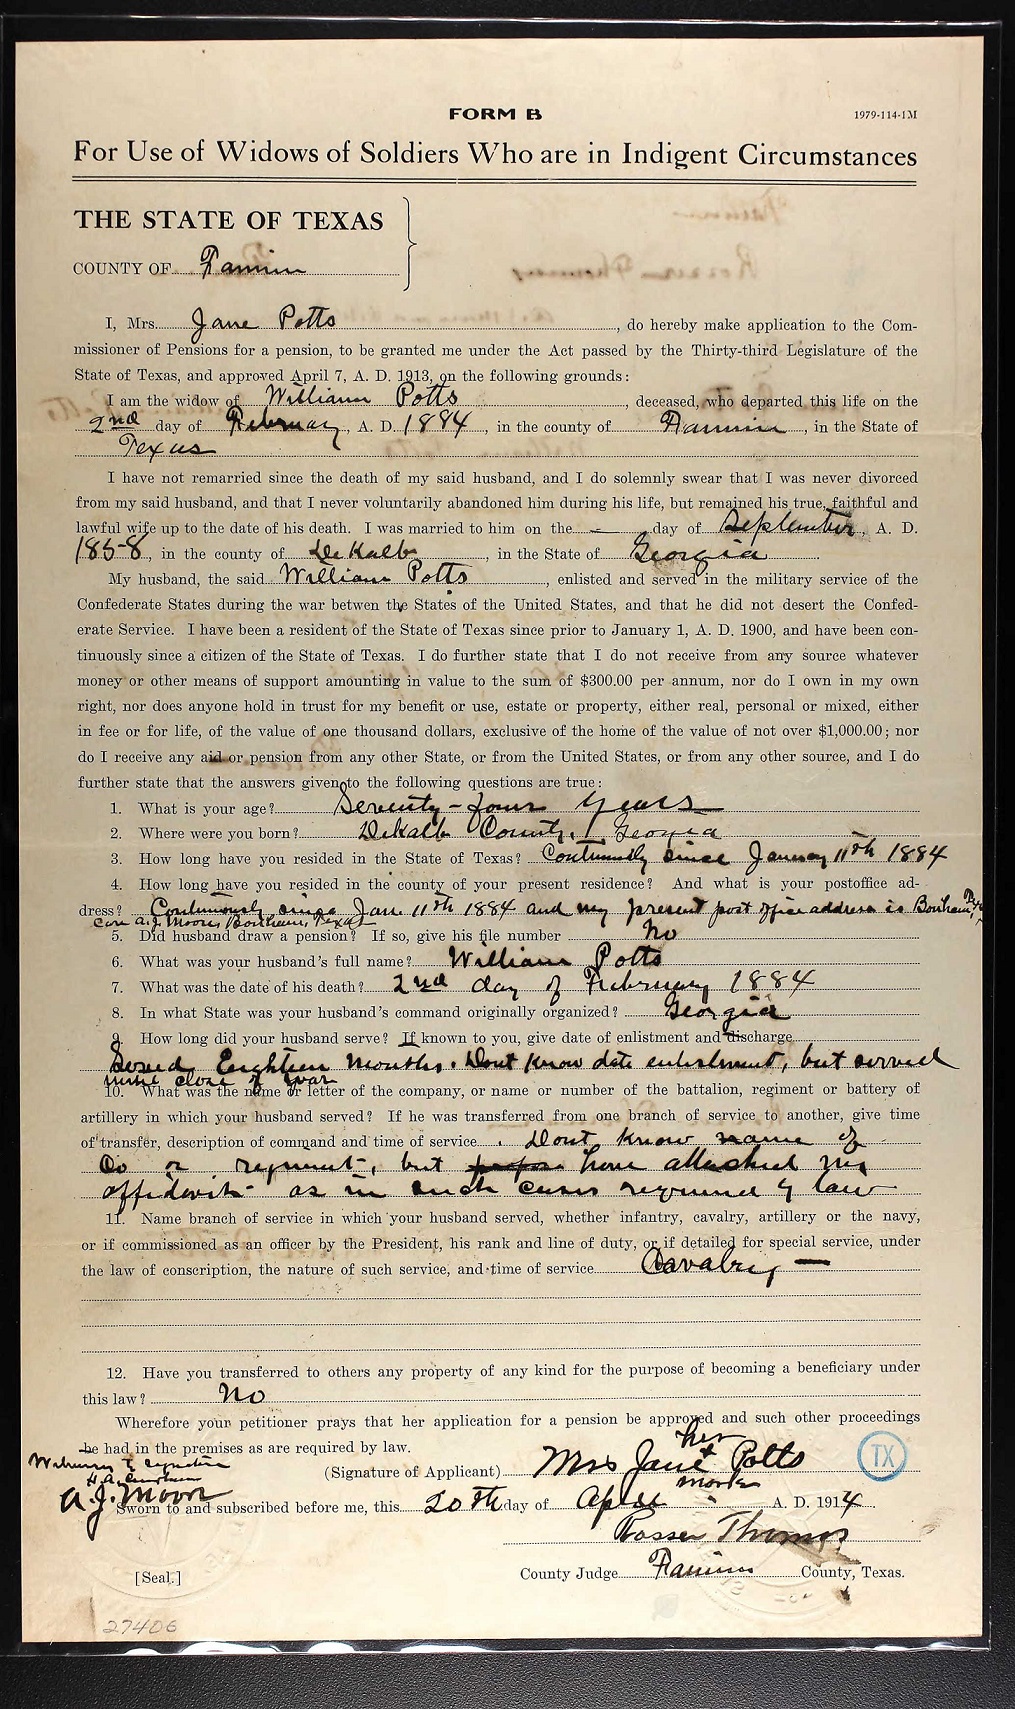 FORM B
1979-114-1M
For Use of Widows of Soldiers Who are in Indigent Circumstances
THE STATE OF TEXAS
COUNTY OF Fannin
I, Mrs. Jane Potts, do hereby make application to the Com-
missioner of Pensions for a pension, to be granted me under the Act passed by the Thirty-third Legislature of the
State of Texas, and approved April 7, A. D. 1913, on the following grounds:
I am the widow of William Potts, deceased, who departed this life on the
2nd day of February, A. D. 1884, in the county of Fannin, in the State of
Texas
I have not remarried since the death of my said husband, and I do solemnly swear that I was never divorced
from my said husband, and that I never voluntarily abandoned him during his life, but remained his true, faithful and
lawful wife up to the date of his death. I was married to him on the — day of September, A. D.
1858, in the county of DeKalb, in the State of Georgia
My husband, the said William Potts, enlisted and served in the military service of the
Confederate States during the war betwen the States of the United States, and that he did not desert the Confed-
erate Service. I have been a resident of the State of Texas since prior to January 1, A. D. 1900, and have been con-
tinuously since a citizen of the State of Texas. I do further state that I do not receive from any source whatever
money or other means of support amounting in value to the sum of $300.00 per annum, nor do I own in my own
right, nor does anyone hold in trust for my benefit or use, estate or property, either real, personal or mixed, either
in fee or for life, of the value of one thousand dollars, exclusive of the home of the value of not over $1,000.00; nor
do I receive any aid or pension from any other State, or from the United States, or from any other source, and I do
further state that the answers given to the following questions are true:
1. What is your age? Seventy-four years
2. Where were you born? DeKalb County, Georgia
3. How long have you resided in the State of Texas? Continually since January 11th 1884
4. How long have you resided in the county of your present residence? And what is your postoffice ad-
dress? Continuously since Jan. 11th 1884 and my present post office address is Bonham, Tex
care A. J. Moore, Bonham, Texas
5. Did husband draw a pension? If so, give his file number No
6. What was your husband's full name? William Potts
7. What was the date of his death? 2nd day of February 1884
8. In what State was your husband's command originally organized? Georgia
9. How long did your husband serve? If known to you, give date of enlistment and discharge
Served Eighteen months. Dont know date enlistment, but served
until close of war
10. What was the name or letter of the company, or name or number of the battalion, regiment or battery of
artillery in which your husband served? If he was transferred from one branch of service to another, give time
of transfer, description of command and time of service. Dont know name of
Co or regiment, but have attached my
affidavit as in such cases required by law
11. Name branch of service in which your husband served, whether infantry, cavalry, artillery or the navy,
or if commissioned as an officer by the President, his rank and line of duty, or if detailed for special service, under
the law of conscription, the nature of such service, and time of service Cavalry —
12. Have you transferred to others any property of any kind for the purpose of becoming a beneficiary under
this law? No
Wherefore your petitioner prays that her application for a pension be approved and such other proceedings
be had in the premises as are required by law.
her
to signature
(Signature of Applicant) Mrs Jane + Potts
mark
TX
A. J. Moore
Sworn to and subscribed before me, this 20th day of April A. D. 1914
Rosser Thomas
[Seal.]
County Judge Fannin County, Texas.
27406